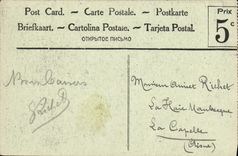 Post Card. – Carte Postale. – Postkarte
Briefkaart. – Cartolina Postale. – Tarjeta Postal.
ОТКРЫТОЕ ПИСЬМО
Prix
5c
Bons Baisers
Richet
Monsieur Richet
La Haie
La Capelle
(Aisne)